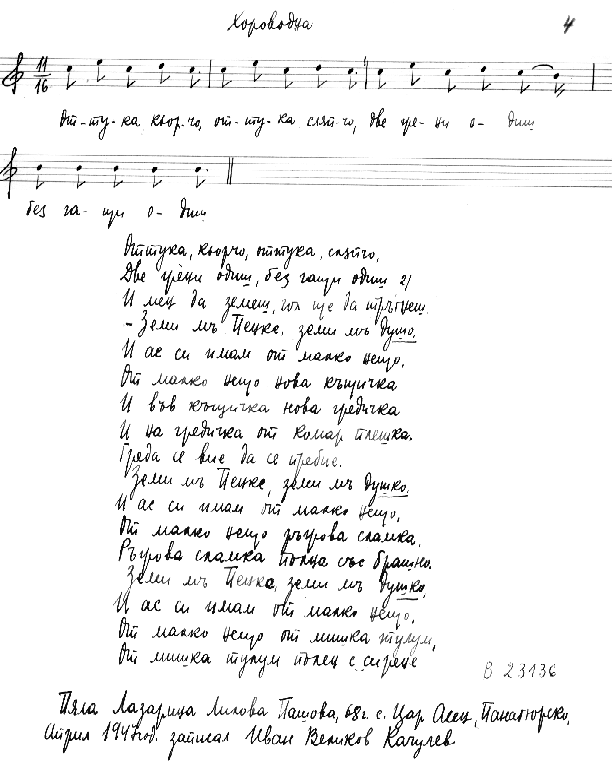 Хороводна
4
11
16
От-ту-ка кьор-чо, от-ту-ка сляп-чо, две гре-ни о- диш
без га- щи о- диш
Оттука, кьорчо, оттука, сляпчо,
Две грени одиш, без гащи одиш 2/
И мен да земеш, гол ще да тръгнеш.
- Земи мъ Пецке, земи мъ душо.
И ас си имам от малко нещо,
От малко нещо нова къщичка
И във къщичка нова гредичка
И на гредичка от комар плешка.
Греда се вие да се пребие.
Земи мъ Пецке, земи мъ душко,
И ас си имам от малко нещо,
От малко нещо ръгова сламка,
Ръгова сламка пълна със брашно.
Земи мъ Пецке, земи мъ душко,
И ас си имам от малко нещо,
От малко нещо от мишка тулум,
От мишка тулум пълен с сирене
В 23136
Пяла Лазарица Лилова Пашова, 68 г. с. Цар Асен, Панагюрско,
Април 1947 год. записал Иван Великов Качулев.